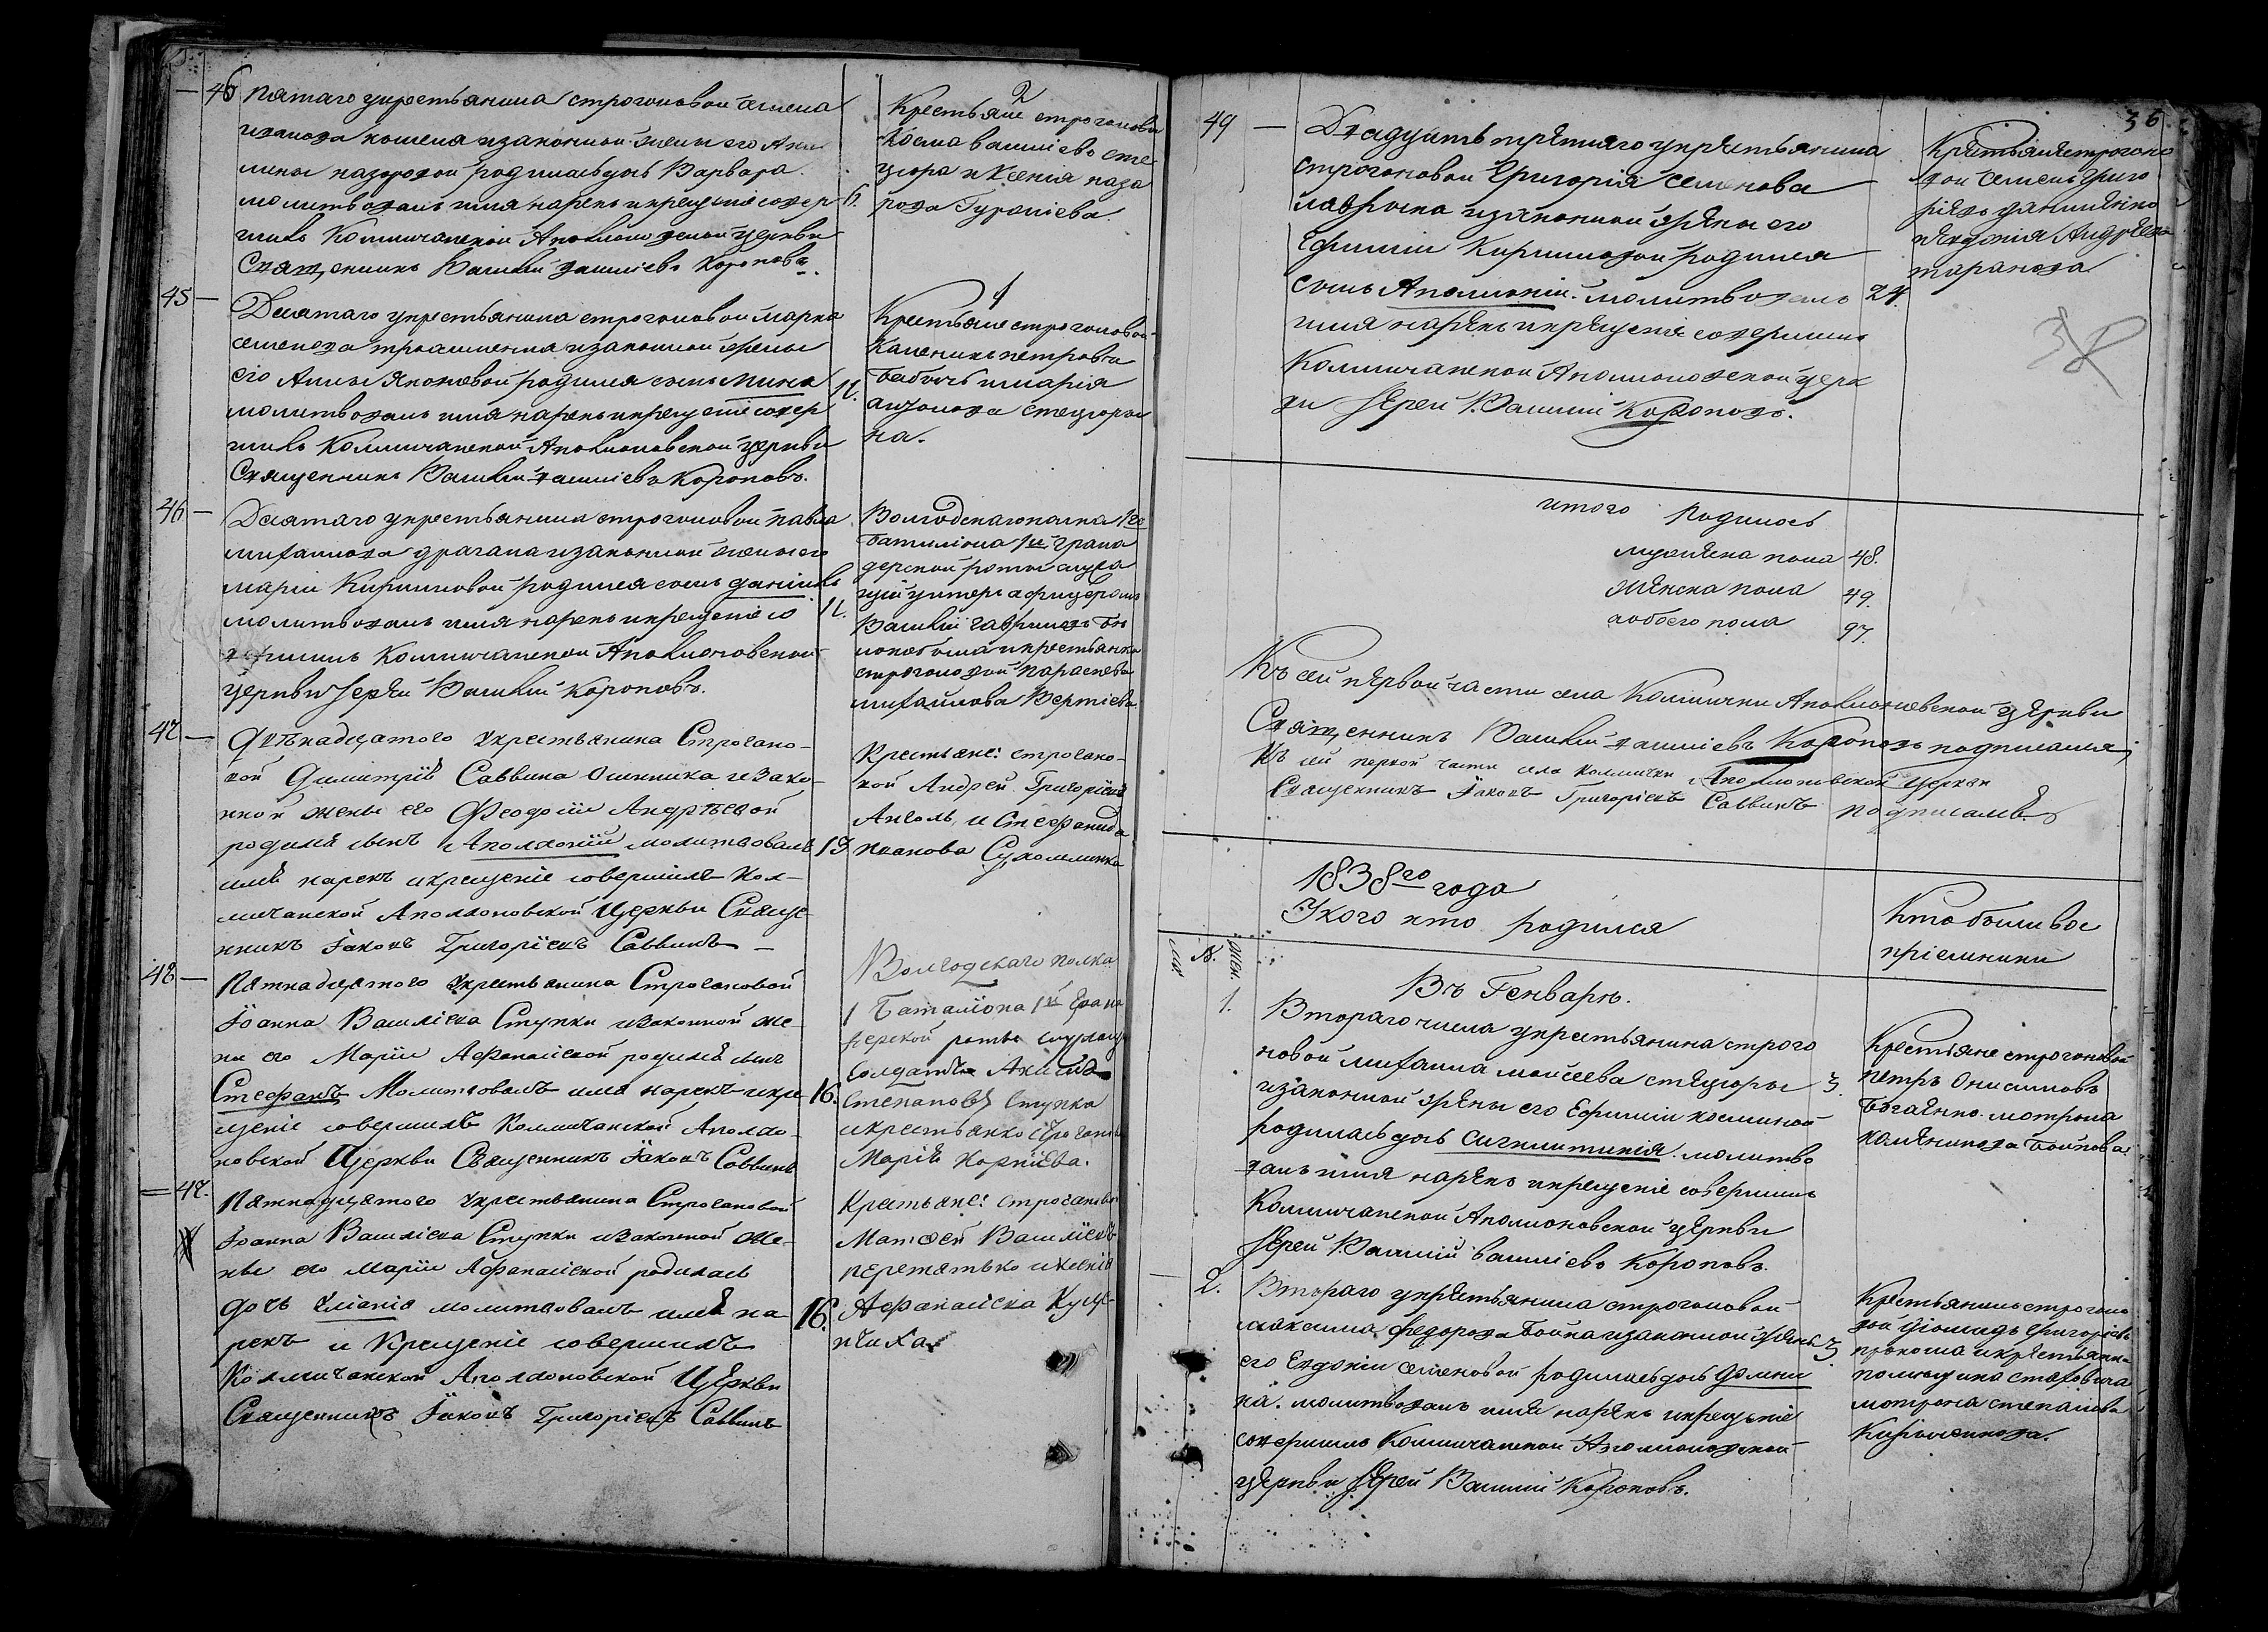 46 Пятаго укрестьянина строгоновой семена
изаконной жены его Аки
лины назаровой родиласьдочь Варвара.
молитвовалъ имя нарекъ икрещеніе совер 6.
шилъ Колмичанской Аполоновской церкви
Священникъ Василій василіевъ Короповъ.
2
Крестьяне строгоновой
Косма василіевъ сте
цюра и Ксенія наза
рова Гурапіева.
45 Десятаго укрестьянина строгоновой марка
семенова изаконной жены
его Анны Яковлевой родился сынъ Мина 11.
молитвовалъ имя нарекъ икрещеніе совер
шилъ Колмичанской Аполоновской церкви
Священникъ Василій василіевъ Короповъ.
Крестьяне строгоновой
Каленикъ петровъ
и марія
антонова стецюрен
ка.
46 Десятаго укрестьянина строгоновой павла
михаилова драгана изаконной жены его
маріи Кириловой родился сынъ даніилъ
молитвовалъ имя нарекъ икрещеніе со 11.
вершилъ Колмичанской Аполоновской
церкви Іерей Василій Короповъ.
Вологодскагополка 1го
Баталіона 1й грена
дерской роты служа
щій унтеръ афицеромъ
Василій гавриловъ Бѣ
икрестьянка
строгоновой параскева
михайлова Вертіева
47 Девѣнадцатого укрестьянина Строгано-
вой Димитрія Саввина изако-
нной жены его Феодосіи Андрѣевой
родился сынъ Аполлоній молитвовалъ 13
имя нарекъ икрещеніе совершилъ Кол-
мичанской Аполлоновской Церкви Свяще-
нникъ Іаковъ Григоріевъ Саввинъ
Крестьяне: строгано-
вой Андрей Григоріевъ
и Стефанида
Иванова Сухомлинка
48 Пятнадцятого укрестьянина Строгановой
Іоанна Василіева Ступки изаконной же-
ны его Маріи Афанасіевой родился сынъ
Стефанъ Молитвовалъ имя нарекъ икре- 16.
щеніе совершилъ Колмичанской Аполло-
новской Церкви Священникъ Іаковъ Саввинъ
Вологодскаго полка
1 Баталіона 1й Грена
дерской роты служащ
солдатъ
Степановъ Ступка
икрестьянка Строганов
Марія Корніева.
47. Пятнадцятого укрестьянина Строгановой
Іоанна Василіева Ступки изаконной же-
ны его Маріи Афанасіевой родилась
дочь Уліанія молитвовалъ имя на- 16.
рекъ и Крещеніе совершилъ
Колмичанской Аполлоновской Церкви
Священникъ Іаковъ Григоріевъ Саввинъ
Крестьяне: Строгановой
Матфей Василіевъ
перетятько иксенія
Афанасіева Куце-
36
49 Двадцять третяго укрестьянина
строгоновой Григорія семенова
изаконной жены его
Ефиміи Кириловой родился
сынъ Аполлоній. молитвовалъ 24.
имя нарекъ икрещеніе совершилъ
Колмичанской Аполоновской церк
ви Іерей Василій Короповъ.
Крестьяне строгоно
вой семенъ григо
ріевъ
иевдокія Андреева
таранова
38
итого Родилось
мужеска пола 48.
женска пола 49.
аобоего пола 97.
Къ сей первой части села Колмички Аполоновской церкви
Священникъ Василій василіевъ Короповъ подписался,
Къ сей первой части села Колмички Аполлоновской Церкви
Священникъ Іаковъ Григоріевъ Саввинъ подписался
1838го года
Укого кто родился
Кто были вос
пріемники
му. № жен.
Въ Генваръ.
1. Втораго числа укрестьянина строго
новой михаила моисеева стецюры 3.
изаконной жены его Ефиміи косминой
родилась дочь сигклитикія. молитво
валъ имя нарекъ икрещеніе совершилъ
Колмичанской Аполоновской церкви
Іерей Василій василіевъ Короповъ.
Крестьяне строгоновой
петръ Онисимовъ
мотрона
каленикова Бойкова
2. Втораго укрестьянина строгоновой
максима федорова Бойка изаконной жены 3.
его Евдокіи семеновой родилась дочь домни
ка. молитвовалъ имя нарекъ икрещеніе
совершилъ Колмичанской Аполоновской
церкви Іерей Василій Короповъ.
Крестьянинъ строгоно
вой діомидъ григоріевъ
икрестьянка
мотрона степанова